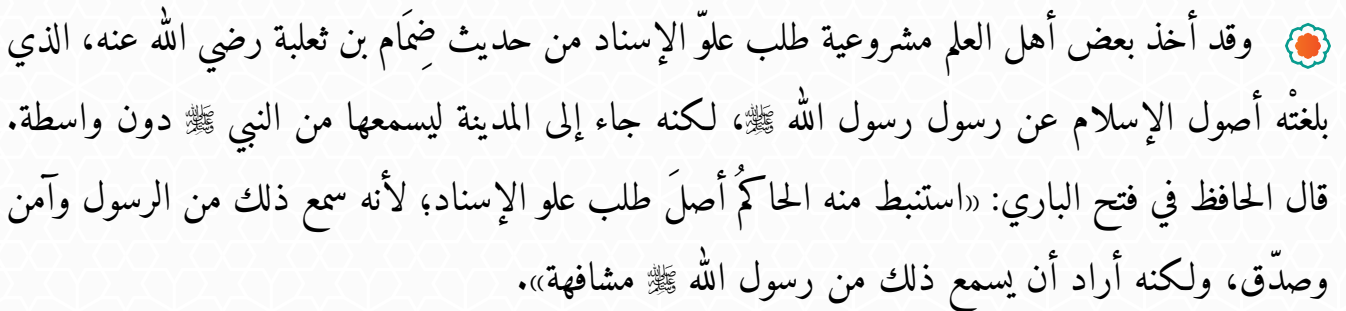 وقد أخذ بعض أهل العلم مشروعية طلب علوّ الإسناد من حديث ضِمَام بن ثعلبة رضي الله عنه، الذي
بلغتْه أصول الإسلام عن رسول رسول الله ﷺ، لكنه جاء إلى المدينة ليسمعها من النبي ﷺ دون واسطة.
قال الحافظ في فتح الباري: «استنبط منه الحاكمُ أصلَ طلب علو الإسناد؛ لأنه سمع ذلك من الرسول وآمن
وصدّق، ولكنه أراد أن يسمع ذلك من رسول الله ﷺ مشافهة».